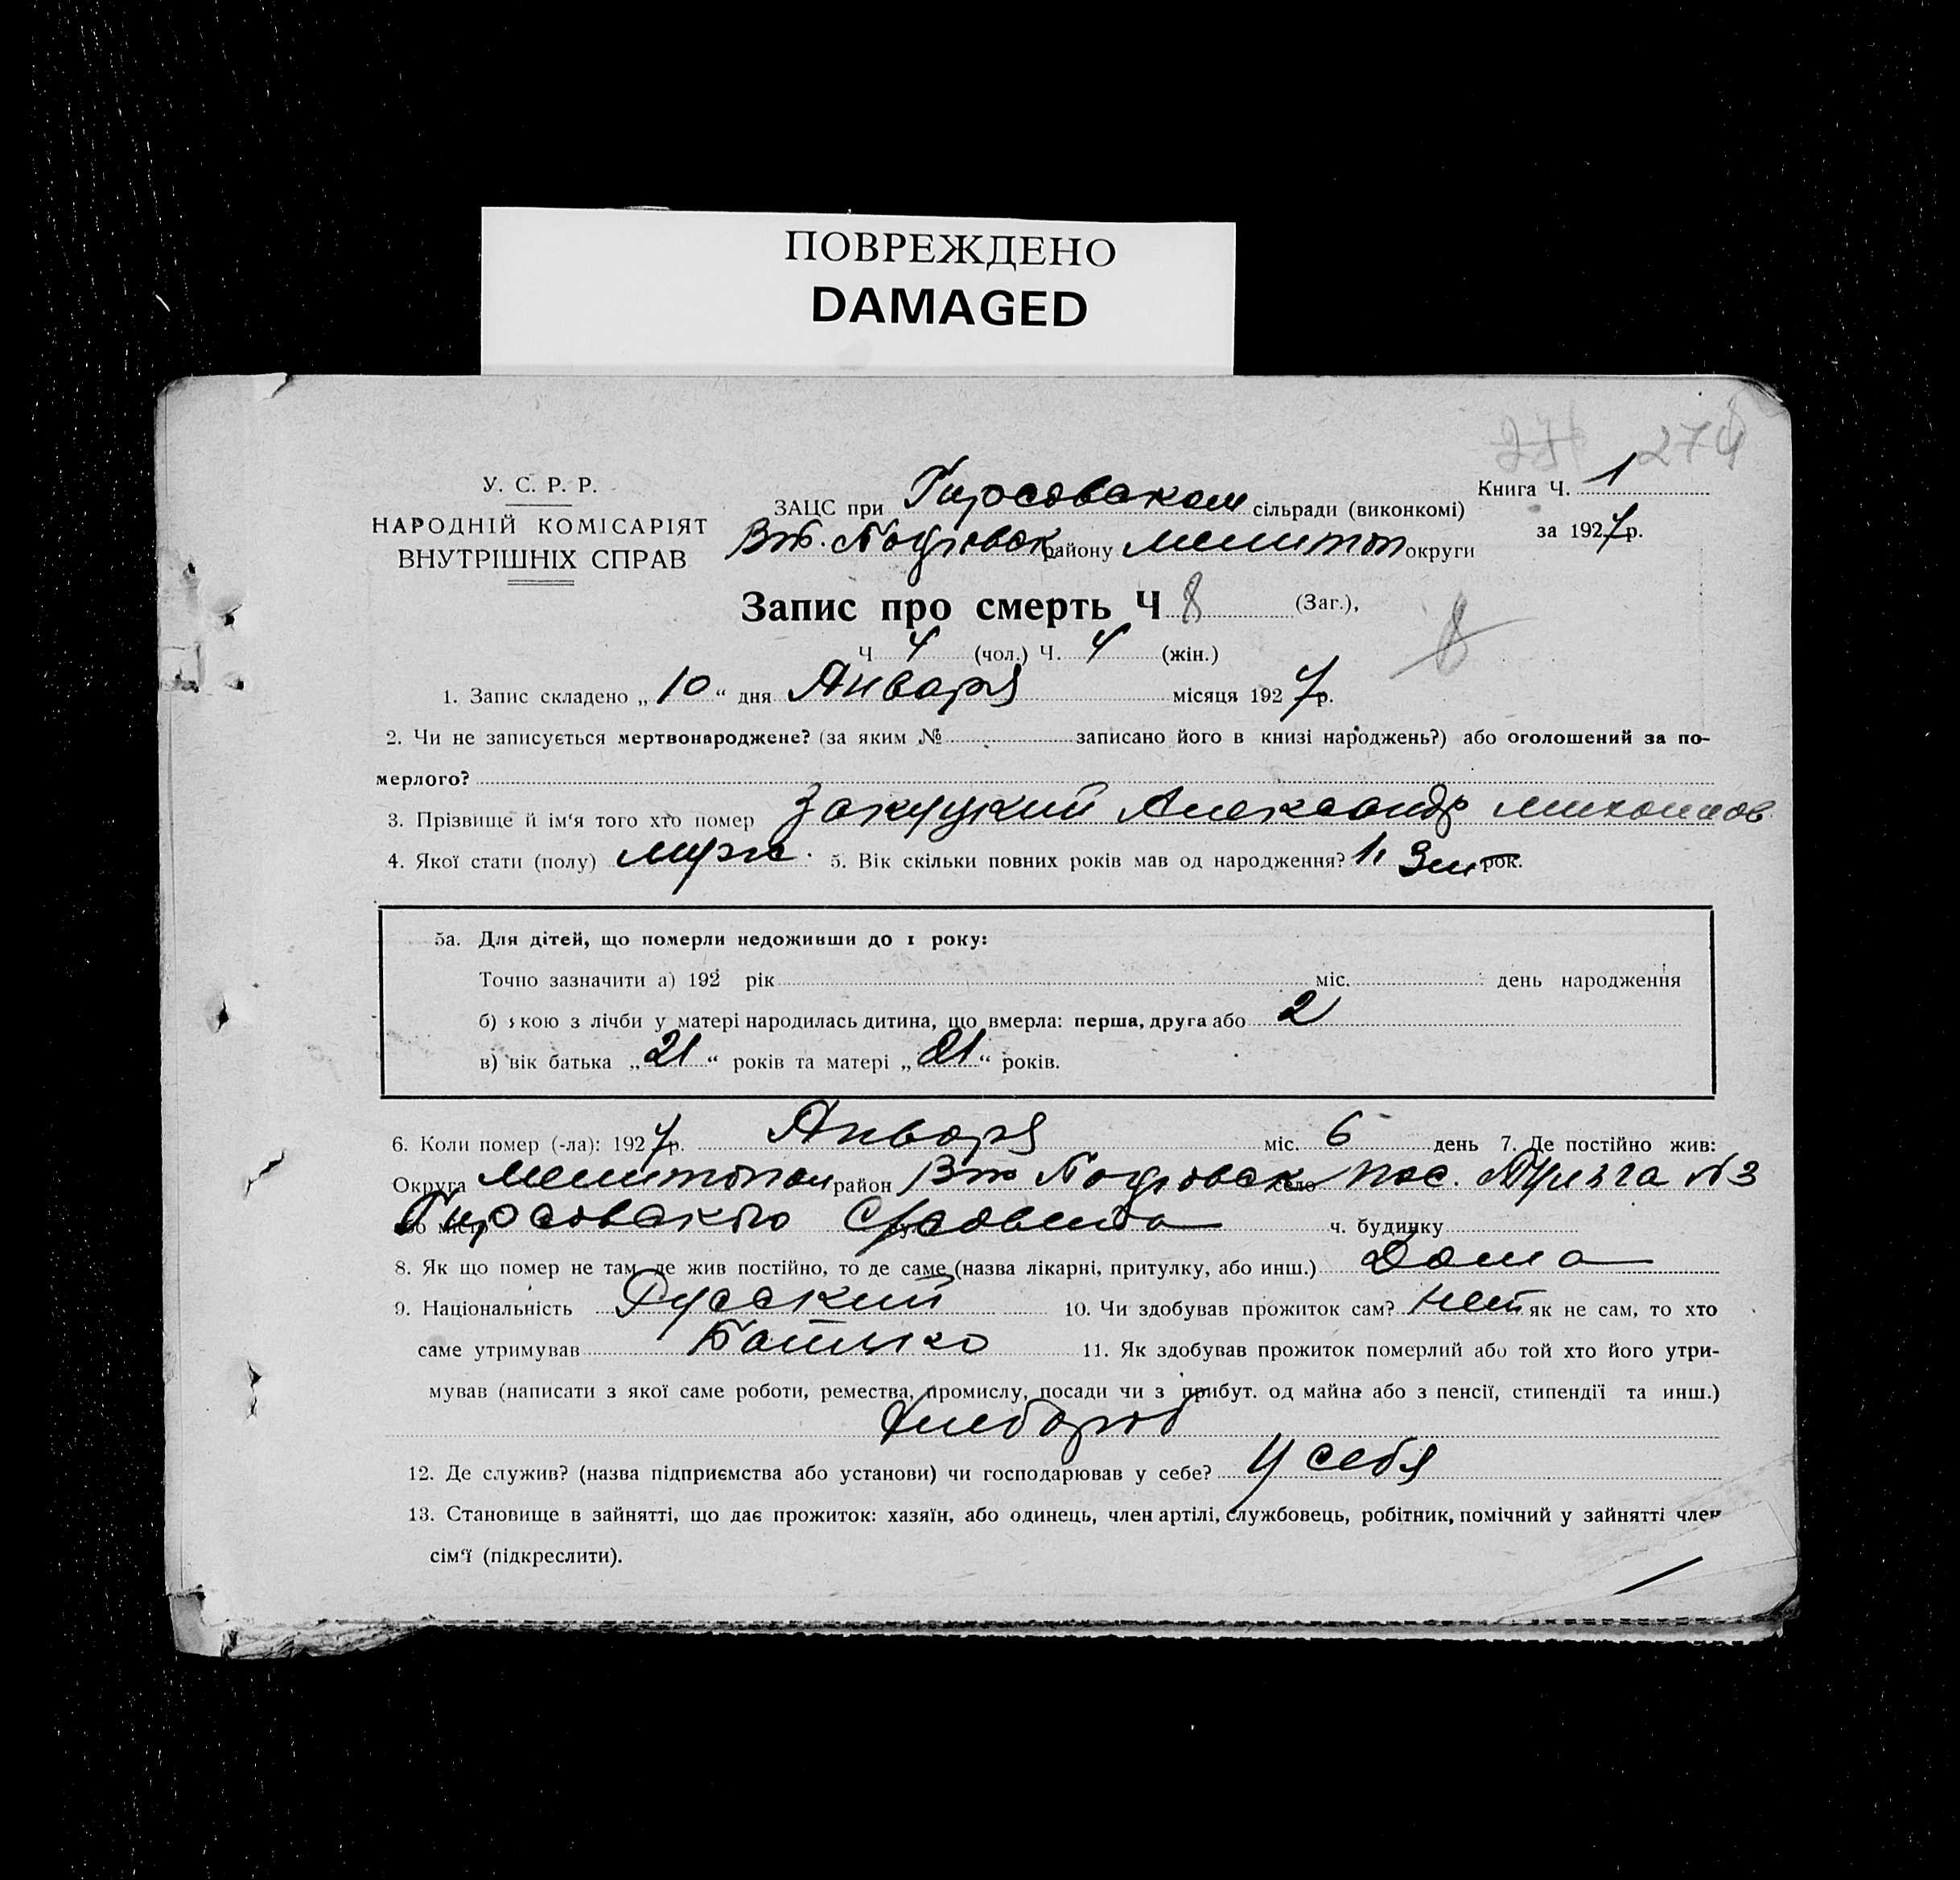 ПОВРЕЖДЕНО
DAMAGED
274
У. С. Р. Р.
НАРОДНІЙ КОМІСАРІЯТ
ВНУТРІШНІХ СПРАВ
Книга Ч. 1
за 1927 р.
ЗАЦС при сільради (виконкомі)
району Мелитоп округи
Запис про смерть Ч 8 (Заг.),
8
Ч 4 (чол.) Ч. 4 (жін.)
1. Запис складено „10“ дня Января місяця 1927 р.
2. Чи не записується мертвонароджене? (за яким № записано його в книзі народжень?) або оголошений за по-
мерлого?
3. Прізвище й ім'я того хто помер Закуцкий Александр Михайлов
4. Якої стати (полу) муж. 5. Вік скільки повних років мав од народження? 1, рок.
5а. Для дітей, що померли недоживши до 1 року:
Точно зазначити а) 192 рік міс. день народження
б) якою з лічби у матері народилась дитина, що вмерла: перша, друга або 2
в) вік батька „21“ років та матері „21“ років.
6. Коли помер (-ла): 1927 р. Января міс. 6 день 7. Де постійно жив:
Округа район село пос. №3
або місто ч. будинку
8. Як що помер не там, де жив постійно, то де саме (назва лікарні, притулку, або инш.) Дома
9. Національність Русский 10. Чи здобував прожиток сам? Нет як не сам, то хто
саме утримував Батько 11. Як здобував прожиток померлий або той хто його утри-
мував (написати з якої саме роботи, ремества, промислу, посади чи з прибут. од майна або з пенсії, стипендії та инш.)
Хлебороб
12. Де служив? (назва підприємства або установи) чи господарював у себе? У себя
13. Становище в зайнятті, що дає прожиток: хазяїн, або одинець, член артілі, службовець, робітник, помічний у зайнятті член
сім'ї (підкреслити).